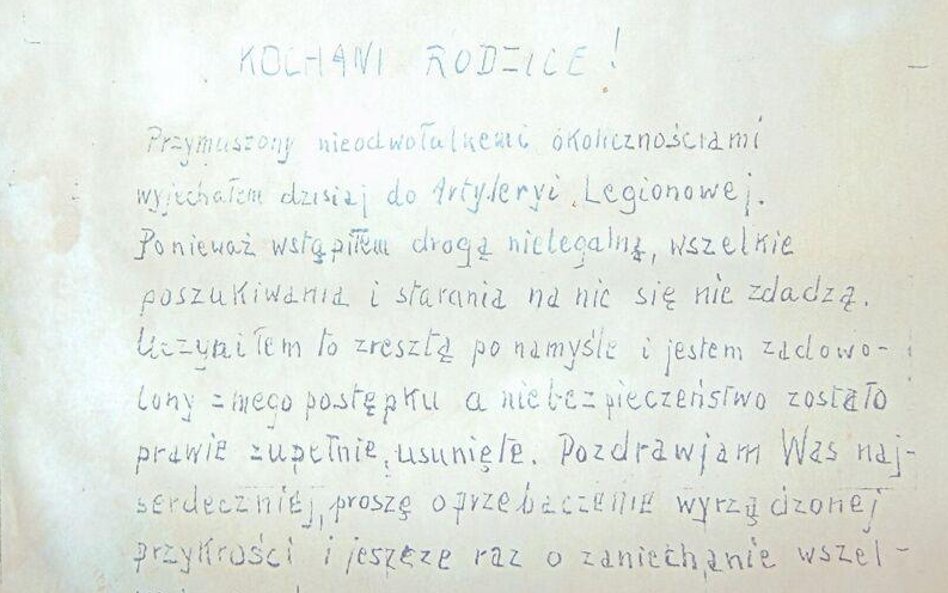 KOCHANI RODZICE!
Przymuszony nieodwołalnemi okolicznościami
wyjechałem dzisiaj do Artyleryi Legionowej.
Ponieważ wstąpiłem drogą nielegalną, wszelkie
poszukiwania i starania na nic się nie zdadzą.
Uczyniłem to zresztą po namyśle i jestem zadowo-
lony z mego postępku a niebezpieczeństwo zostało
prawie zupełnie usunięte. Pozdrawjam Was naj-
serdeczniej, proszę o przebaczenie wyrządzonej
przykrości i jeszcze raz o zaniechanie wszel-